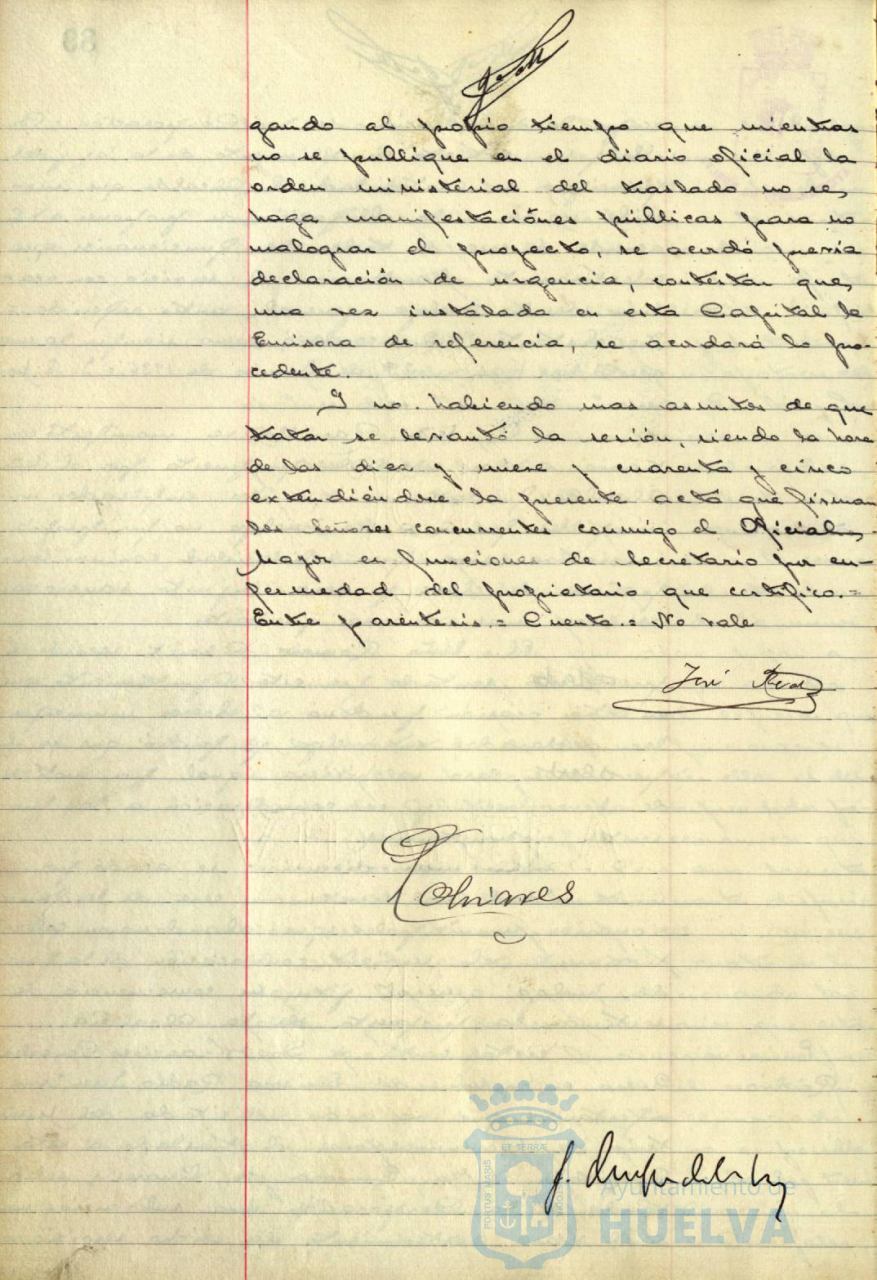 gando al propio tiempo que mientras
no se publique en el diario oficial la
orden ministerial del traslado no se
haga manifestaciónes públicas para no
malograr el proyecto, se acordó previa
declaración de urgencia, contestar que,
una vez instalada en esta Capital la
Emisora de referencia, se acordará lo pro-
cedente.
Y no habiendo mas asuntos de que
tratar se levantó la sesión, siendo la hora
de las diez y nueve y cuarenta y cinco
extendiéndose la presente acta que firman
los señores concurrentes conmigo el Oficial
Mayor en funciones de Secretario por en-
fermedad del propietario que certifico.=
Entre parentesis.= Cuenta.= No vale
José
Olivares
EX TERRAE
PORTUS MARIS
Ayuntamiento de
HUELVA